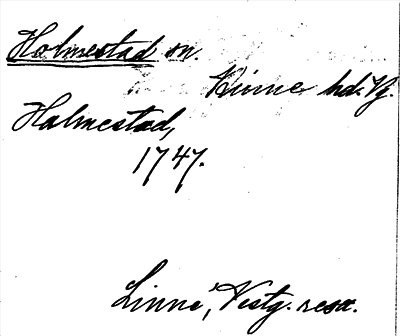 Holmestad sn.
Kinne hd. Vg.
Halmestad,
1747.
Linné, Vestg. resa.